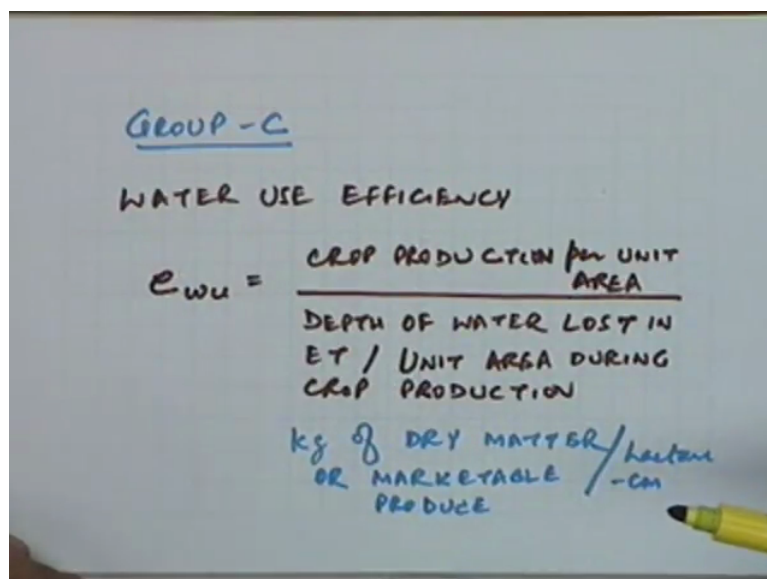 GROUP - C
WATER USE EFFICIENCY
e wu = CROP PRODUCTION per UNIT AREA
DEPTH OF WATER LOST IN
ET / UNIT AREA DURING
CROP PRODUCTION
kg of DRY MATTER / hectare
OR MARKETABLE - cm
PRODUCE